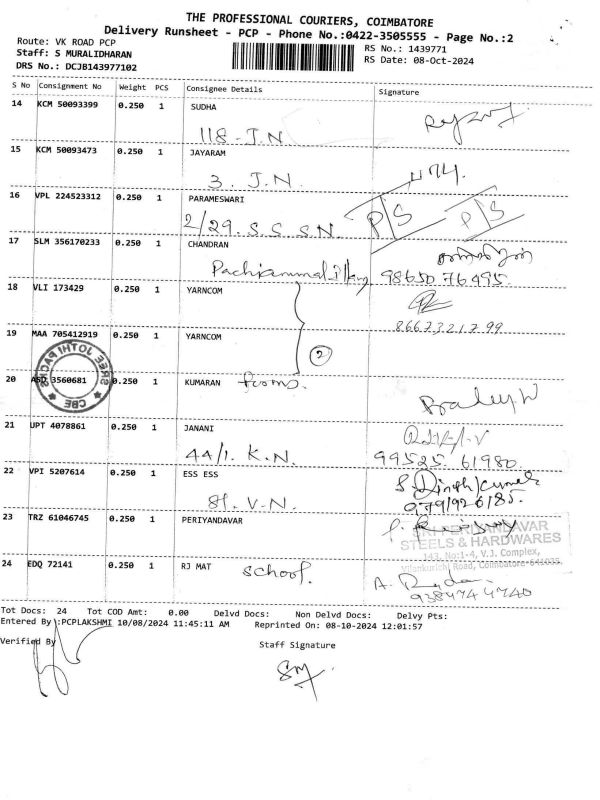 THE PROFESSIONAL COURIERS, COIMBATORE
Delivery Runsheet - PCP - Phone No.:0422-3505555 - Page No.:2
Route: VK ROAD PCP
RS No.: 1439771
Staff: S MURALIDHARAN
RS Date: 08-Oct-2024
DRS No.: DCJB143977102
S No Consignment No Weight PCS Consignee Details Signature
14 KCM 50093399 0.250 1 SUDHA
118-J.N.
15 KCM 50093473 0.250 1 JAYARAM
3. J.N.
16 VPL 224523312 0.250 1 PARAMESWARI
2/29. S.S.S.N. P/S P/S
17 SLM 356170233 0.250 1 CHANDRAN
98650 76495.
18 VLI 173429 0.250 1 YARNCOM
19 MAA 705412919 0.250 1 YARNCOM
2
SREE JOTHI PACKS
CBE
20 3560681 0.250 1 KUMARAN
21 UPT 4078861 0.250 1 JANANI
44/1. K.N. 99525 61980
22 VPI 5207614 0.250 1 ESS ESS
81. V.N.
23 TRZ 61046745 0.250 1 PERIYANDAVAR
SRI PERIYANDAVAR
STEELS & HARDWARES
143, No:1-4, V.J. Complex,
Vilankurichi Road, Coimbatore-641035.
24 EDQ 72141 0.250 1 RJ MAT School.
Tot Docs: 24 Tot COD Amt: 0.00 Delvd Docs: Non Delvd Docs: Delvy Pts:
Entered By :PCPLAKSHMI 10/08/2024 11:45:11 AM Reprinted On: 08-10-2024 12:01:57
Verified By
Staff Signature